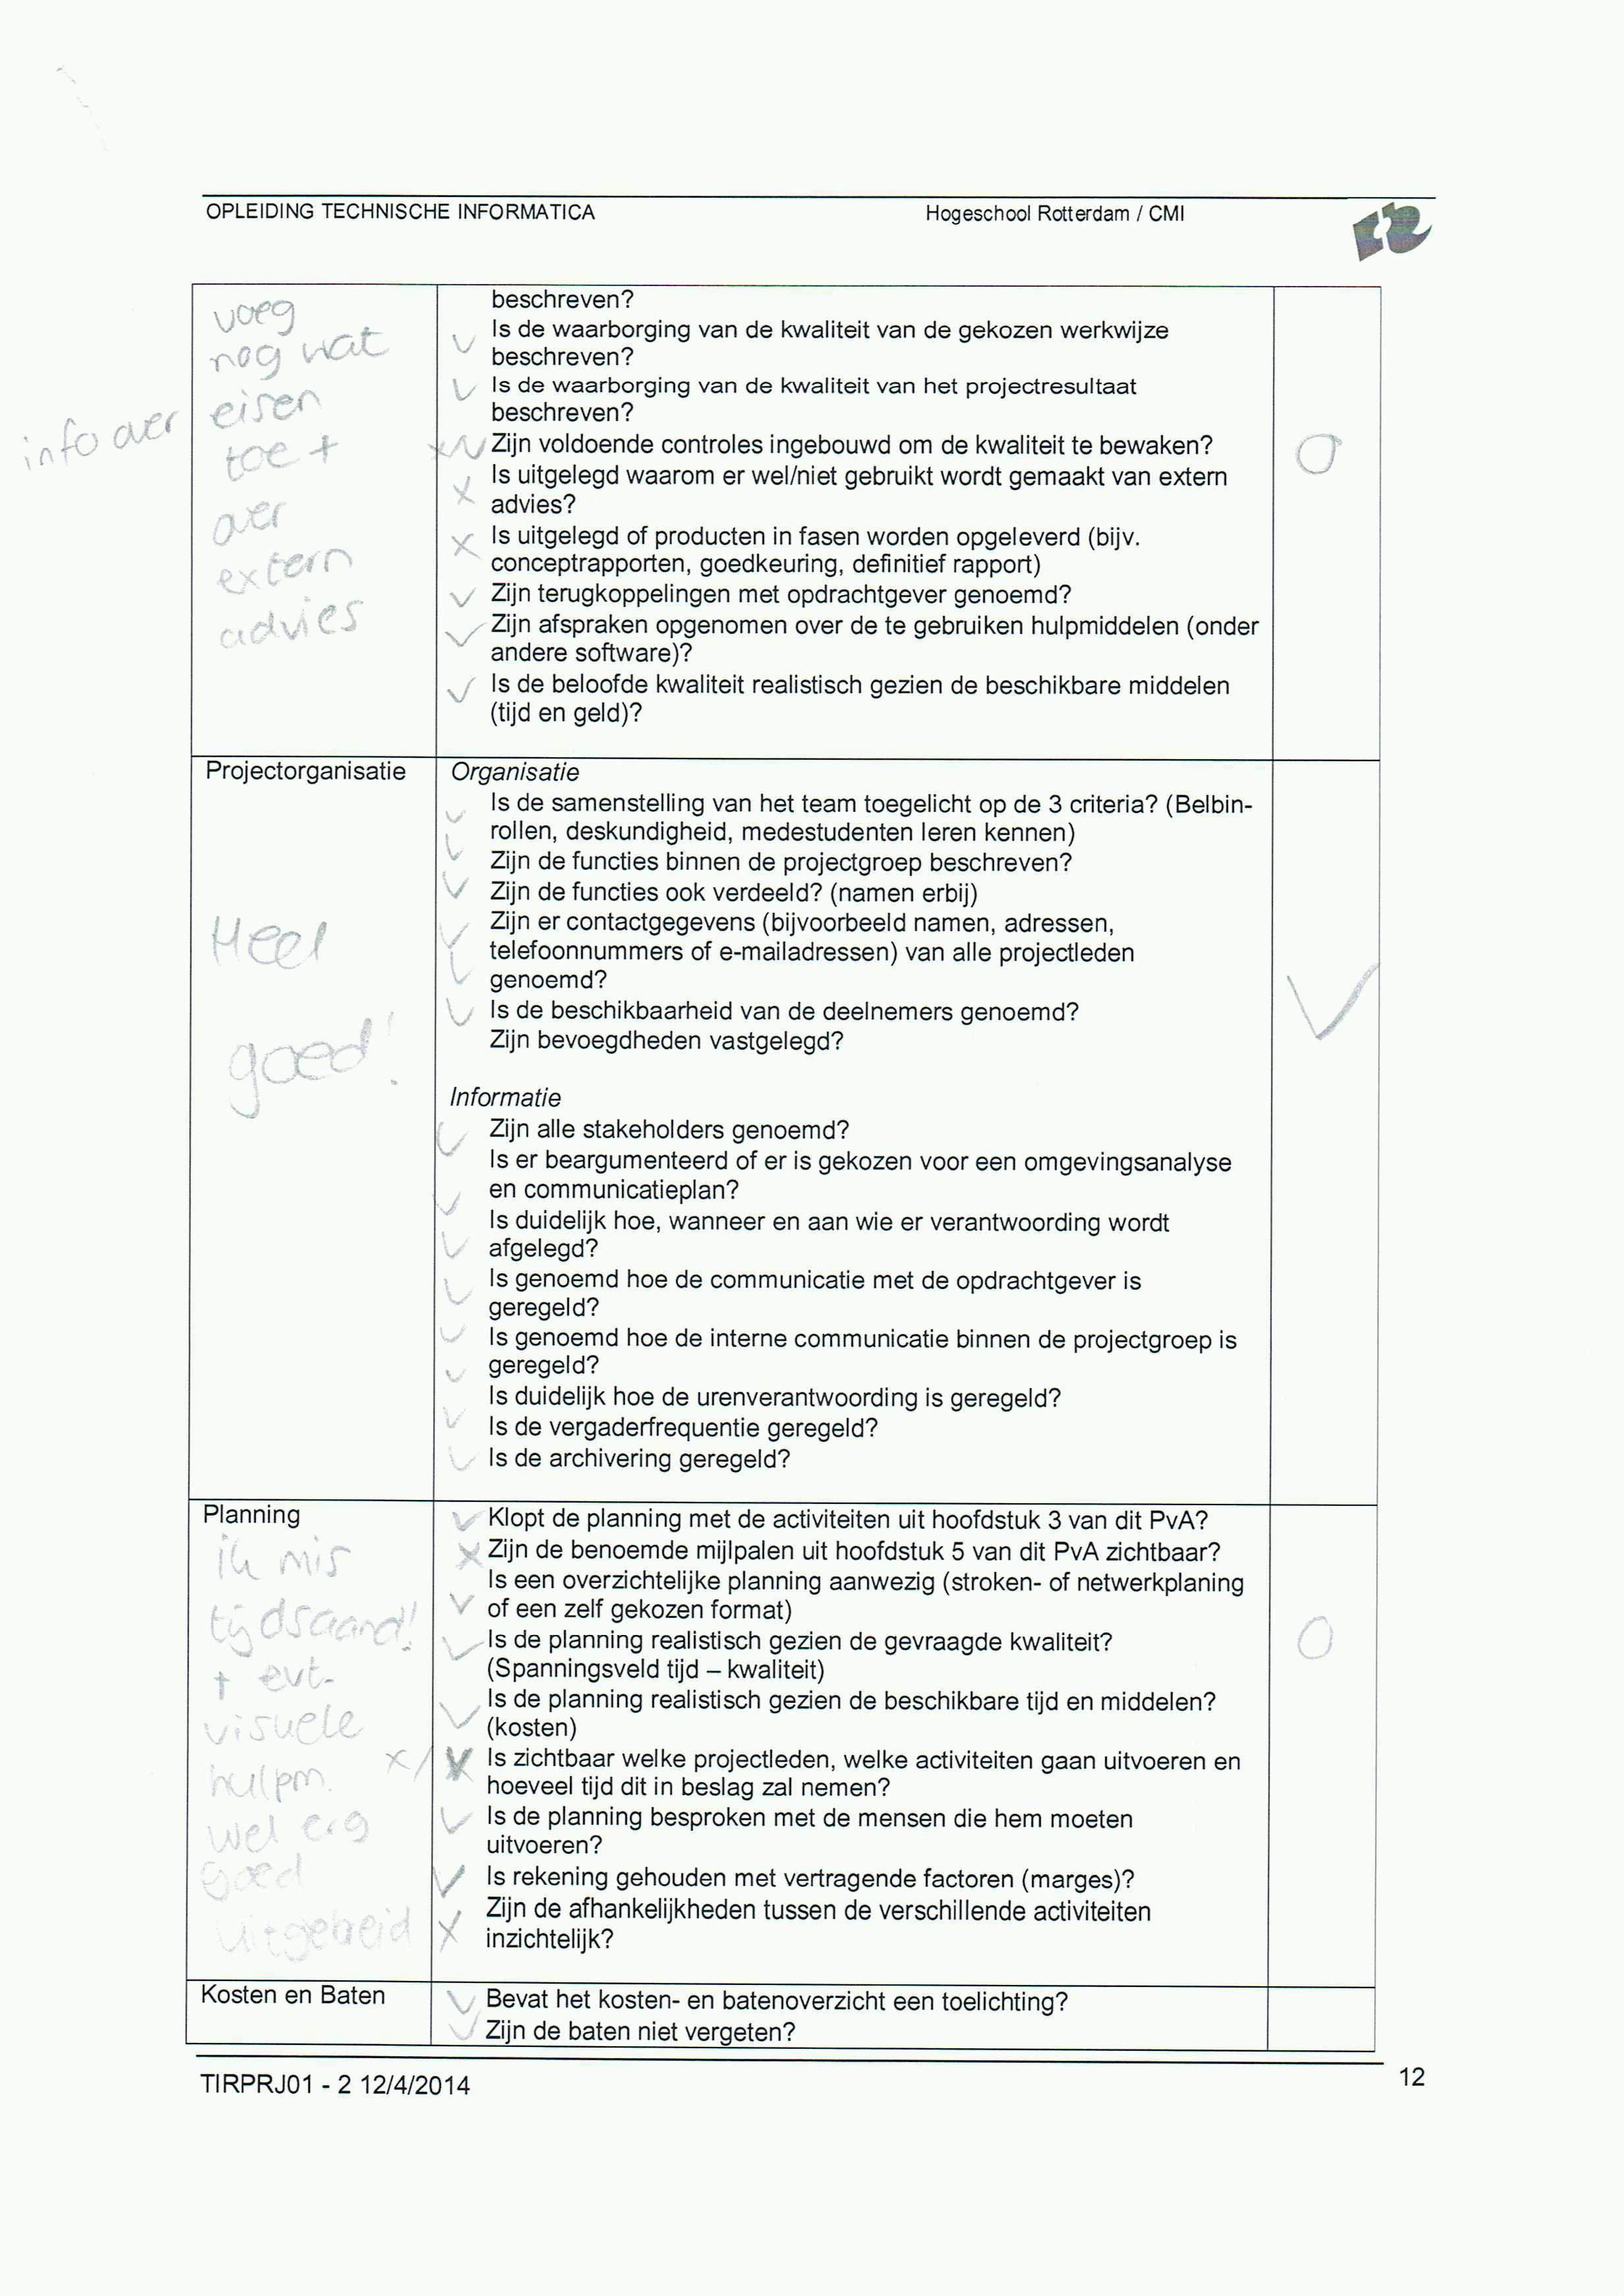 OPLEIDING TECHNISCHE INFORMATICA
Hogeschool Rotterdam / CMI
voeg
nog wat
info over eisen
toe +
over
extern
advies
beschreven?
Is de waarborging van de kwaliteit van de gekozen werkwijze
beschreven?
Is de waarborging van de kwaliteit van het projectresultaat
beschreven?
Zijn voldoende controles ingebouwd om de kwaliteit te bewaken?
Is uitgelegd waarom er wel/niet gebruikt wordt gemaakt van extern
advies?
Is uitgelegd of producten in fasen worden opgeleverd (bijv.
conceptrapporten, goedkeuring, definitief rapport)
Zijn terugkoppelingen met opdrachtgever genoemd?
Zijn afspraken opgenomen over de te gebruiken hulpmiddelen (onder
andere software)?
Is de beloofde kwaliteit realistisch gezien de beschikbare middelen
(tijd en geld)?
Projectorganisatie
Heel
goed!
Organisatie
Is de samenstelling van het team toegelicht op de 3 criteria? (Belbin-
rollen, deskundigheid, medestudenten leren kennen)
Zijn de functies binnen de projectgroep beschreven?
Zijn de functies ook verdeeld? (namen erbij)
Zijn er contactgegevens (bijvoorbeeld namen, adressen,
telefoonnummers of e-mailadressen) van alle projectleden
genoemd?
Is de beschikbaarheid van de deelnemers genoemd?
Zijn bevoegdheden vastgelegd?
Informatie
Zijn alle stakeholders genoemd?
Is er beargumenteerd of er is gekozen voor een omgevingsanalyse
en communicatieplan?
Is duidelijk hoe, wanneer en aan wie er verantwoording wordt
afgelegd?
Is genoemd hoe de communicatie met de opdrachtgever is
geregeld?
Is genoemd hoe de interne communicatie binnen de projectgroep is
geregeld?
Is duidelijk hoe de urenverantwoording is geregeld?
Is de vergaderfrequentie geregeld?
Is de archivering geregeld?
Planning
ik mis
+ evt.
visuele
hulpm.
wel erg
goed
uitgebreid
Klopt de planning met de activiteiten uit hoofdstuk 3 van dit PvA?
Zijn de benoemde mijlpalen uit hoofdstuk 5 van dit PvA zichtbaar?
Is een overzichtelijke planning aanwezig (stroken- of netwerkplaning
of een zelf gekozen format)
Is de planning realistisch gezien de gevraagde kwaliteit?
(Spanningsveld tijd – kwaliteit)
Is de planning realistisch gezien de beschikbare tijd en middelen?
(kosten)
Is zichtbaar welke projectleden, welke activiteiten gaan uitvoeren en
hoeveel tijd dit in beslag zal nemen?
Is de planning besproken met de mensen die hem moeten
uitvoeren?
Is rekening gehouden met vertragende factoren (marges)?
Zijn de afhankelijkheden tussen de verschillende activiteiten
inzichtelijk?
Kosten en Baten
Bevat het kosten- en batenoverzicht een toelichting?
Zijn de baten niet vergeten?
TIRPRJ01 - 2 12/4/2014
12